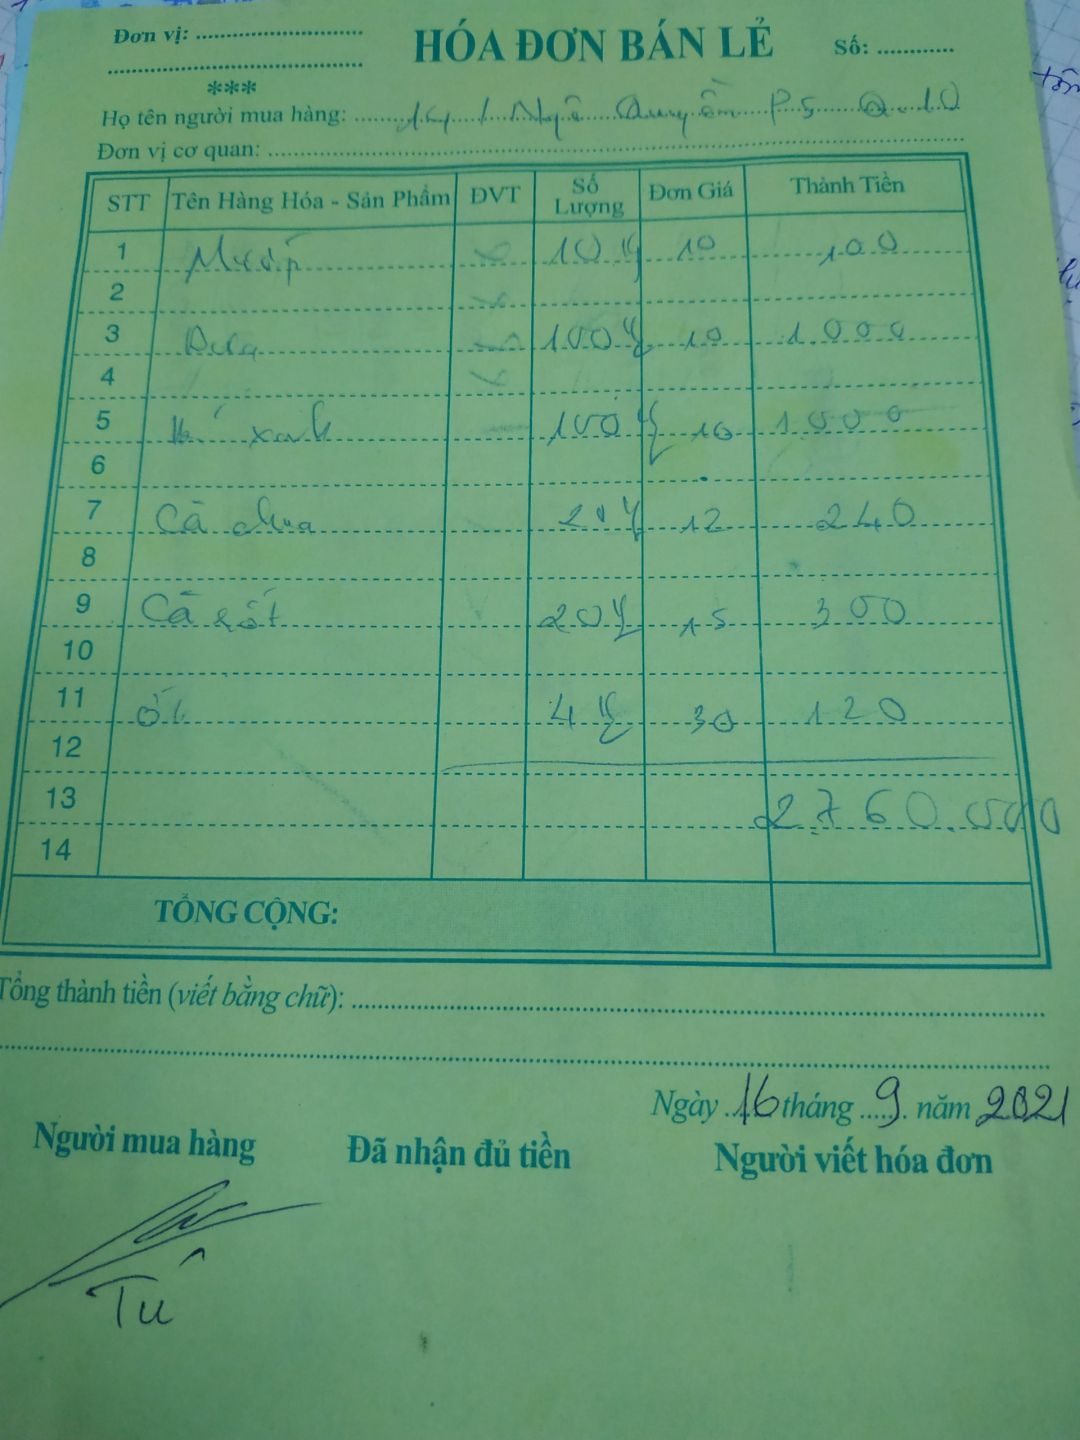 Đơn vị:
HÓA ĐƠN BÁN LẺ
Số:
***
Họ tên người mua hàng: Ngô Quyền P5 Q.10
Đơn vị cơ quan:
STT Tên Hàng Hóa - Sản Phẩm ĐVT Số Lượng Đơn Giá Thành Tiền
1 Mướp 10 kg 10 100
2
3 Dưa 100 kg 10 1.000
4
5 Bí xanh 100 kg 10 1000
6
7 Cà chua 20 kg 12 240
8
9 Cà rốt 20 kg 15 300
10
11 Ớt 4 kg 30 120
12
13 2.760.000
14
TỔNG CỘNG:
Tổng thành tiền (viết bằng chữ):
Ngày 16 tháng 9 năm 2021
Người mua hàng Đã nhận đủ tiền Người viết hóa đơn
Tú